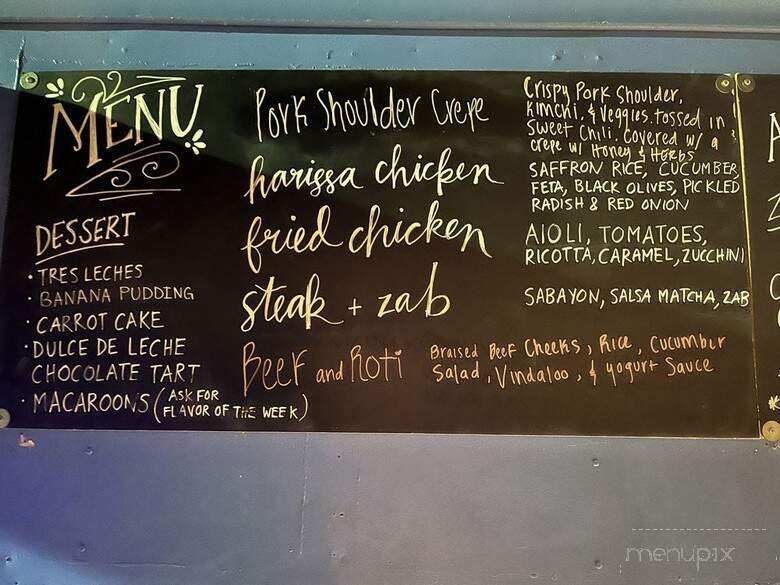 MENU
DESSERT
· TRES LECHES
· BANANA PUDDING
· CARROT CAKE
· DULCE DE LECHE
CHOCOLATE TART
· MACAROONS (ASK FOR
FLAVOR OF THE WEEK)
Pork Shoulder Crepe
Crispy Pork Shoulder,
Kimchi, & Veggies tossed in
Sweet Chili, Covered w/ a
crepe w/ Honey & Herbs
harissa chicken
SAFFRON RICE, CUCUMBER
FETA, BLACK OLIVES, PICKLED
RADISH & RED ONION
fried chicken
AIOLI, TOMATOES,
RICOTTA, CARAMEL, ZUCCHINI
steak + zab
SABAYON, SALSA MATCHA, ZAB
Beef and Roti
Braised Beef Cheeks, Rice, Cucumber
Salad, Vindaloo, & yogurt Sauce
menupix